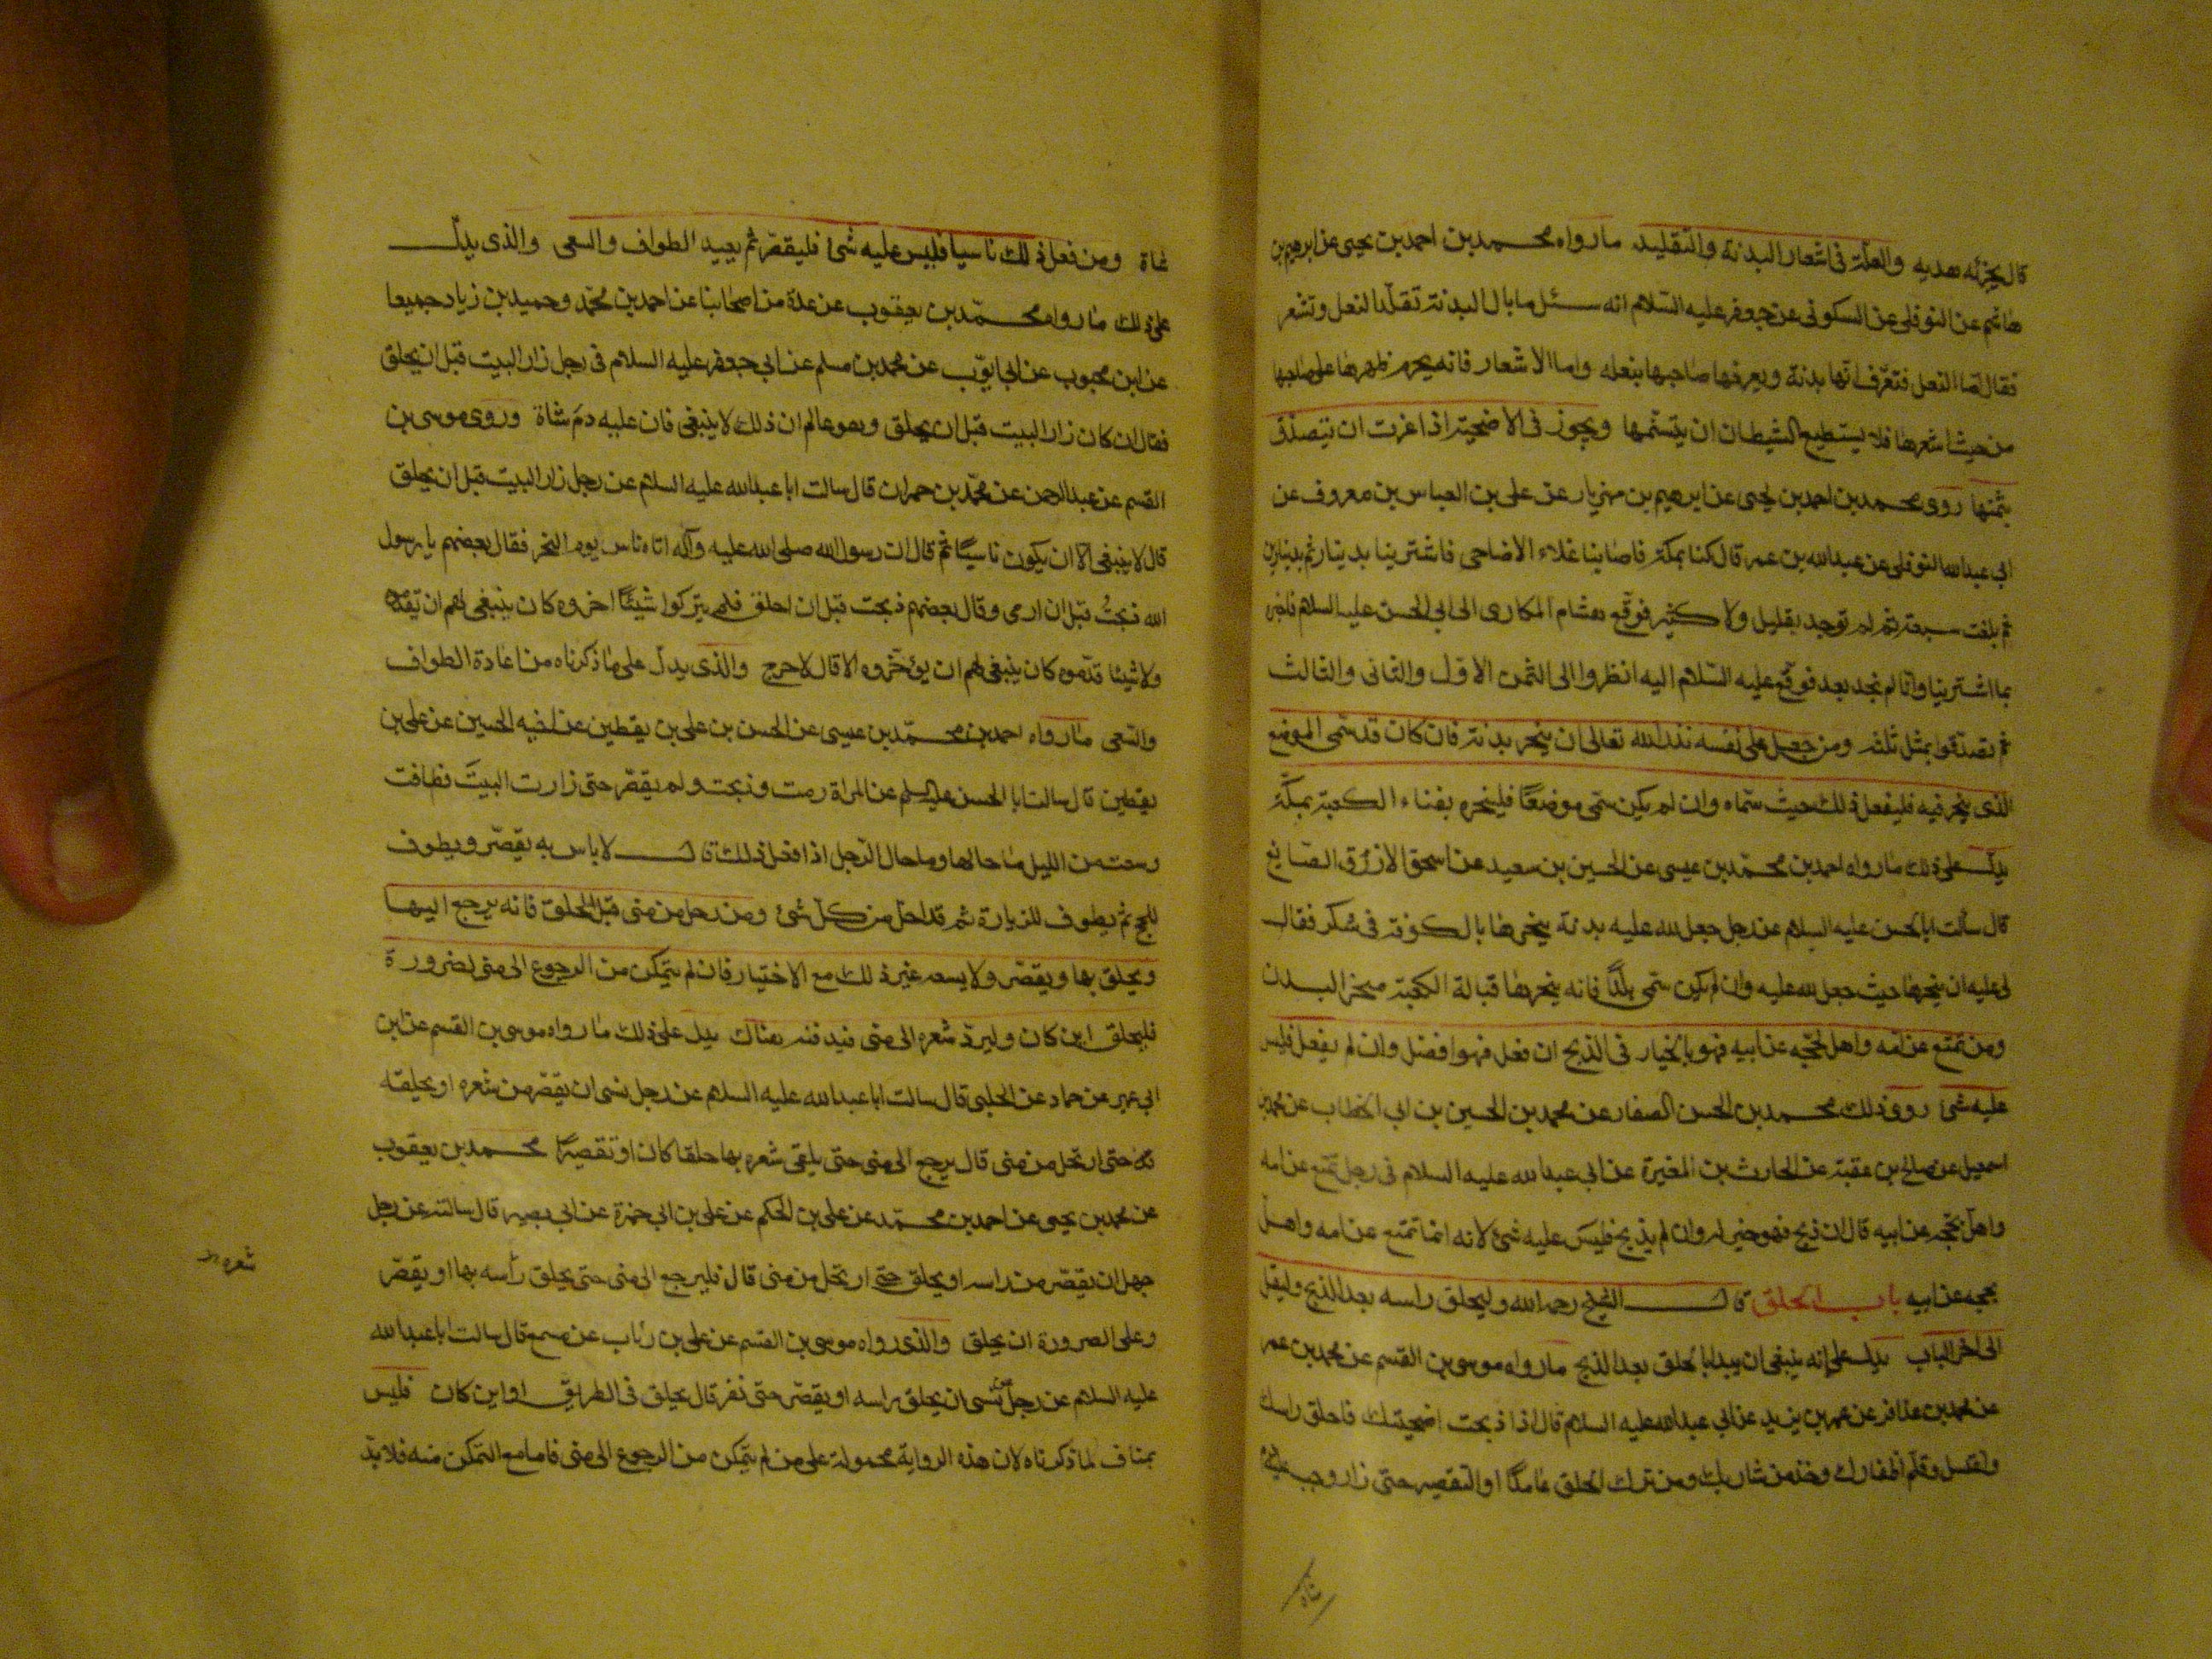 قال يجزئه هديه والعلة في اشعار البدنة والتقليد ما رواه محمد بن احمد بن يحيى عن ابرهيم بن
هاشم عن النوفلي عن السكوني عن جعفر عليه السلام انه سئل ما بال البدنة تقلد النعل وتشعر
فقال اما النعل فتعرف انها بدنة ويعرفها صاحبها بنعله واما الاشعار فانه يحرم ظهرها على صاحبها
من حيث اشعرها فلا يستطيع الشيطان ان يتسنمها ويجوز في الاضحية اذا عزت ان يتصدق
بثمنها روى محمد بن احمد بن يحيى عن ابرهيم بن مهزيار عن على بن العباس بن معروف عن
ابي عبد الله النوفلي عن عبد الله بن عمر قال كنا بمكة فاصابنا غلاء الاضاحي فاشترينا بدينار ثم بدينارين
ثم بلغت سبعة ثم لم توجد بقليل ولا كثير فوقع هشام المكارى الى ابي الحسن عليه السلام فاخبره
بما اشترينا وانا لم نجد بعد فوقع عليه السلام اليه انظروا الى الثمن الاول والثاني والثالث
ثم تصدقوا بمثل ثلثه ومن جعل على نفسه نذرا لله تعالى ان ينحر بدنة فان كان قد سمى الموضع
الذى ينحر فيه فليفعل ذلك حيث سماه وان لم يكن سمى موضعًا فلينحره بفناء الكعبة بمكة
يدل على ذلك ما رواه احمد بن محمد بن عيسى عن الحسين بن سعيد عن اسحق الازرق الصايغ
قال سألت ابا الحسن عليه السلام عن رجل جعل لله عليه بدنة ينحرها بالكوفة في شكر فقال
لى عليه ان ينحرها حيث جعل لله عليه وان لم يكن سمى بلدًا فانه ينحرها قبالة الكعبة منحر البدن
ومن تمتع عن امه واهل بحجه عن ابيه فهو بالخيار في الذبح ان فعل فهو افضل وان لم يفعل فليس
عليه شئ روى ذلك محمد بن الحسن الصفار عن محمد بن الحسين بن ابي الخطاب عن محمد بن
اسمعيل عن صالح بن عقبة عن الحارث بن المغيرة عن ابي عبد الله عليه السلام في رجل تمتع عن امه
واهل بحجه عن ابيه قال ان ذبح فهو خير له وان لم يذبح فليس عليه شئ لانه انما تمتع عن امه واهل
بحجه عن ابيه باب الحلق قال الشيخ رحمه الله وليحلق راسه بعد الذبح وليقل
الى اخر الباب يدل على انه ينبغي ان يبدا بالحلق بعد الذبح ما رواه موسى بن القسم عن محمد بن عمر
عن محمد بن عذافر عن عمر بن يزيد عن ابي عبد الله عليه السلام قال اذا ذبحت اضحيتك فاحلق راسك
واغتسل وقلم اظفارك وخذ من شاربك ومن ترك الحلق عامدًا او التقصير حتى زار وجب عليه دم
شاة
شاة ومن فعل ذلك ناسيا فليس عليه شئ فليقصر ثم يعيد الطواف والسعى والذى يدل
على ذلك ما رواه محمد بن يعقوب عن عدة من اصحابنا عن احمد بن محمد وحميد بن زياد جميعا
عن ابن محبوب عن ابي ايوب عن محمد بن مسلم عن ابي جعفر عليه السلام في رجل زار البيت قبل ان يحلق
فقال ان كان زار البيت قبل ان يحلق وهو عالم ان ذلك لا ينبغي فان عليه دم شاة وروى موسى بن
القسم عن عبد الرحمن عن محمد بن حمران قال سالت ابا عبد الله عليه السلام عن رجل زار البيت قبل ان يحلق
قال لا ينبغي الا ان يكون ناسيًا ثم قال ان رسول الله صلى الله عليه وآله اتاه ناس يوم النحر فقال بعضهم يا رسول
الله ذبحتُ قبل ان ارمى وقال بعضهم ذبحت قبل ان احلق فلم يتركوا شيئًا اخروه كان ينبغي لهم ان يقدموه
ولا شيئا قدموه كان ينبغي لهم ان يؤخروه الا قال لا حرج والذى يدل على ما ذكرناه من اعادة الطواف
والسعى ما رواه احمد بن محمد بن عيسى عن الحسن بن على بن يقطين عن اخيه الحسين عن على بن
يقطين قال سالت ابا الحسن عليه السلم عن المراة رمت وذبحت ولم يقصر حتى زارت البيت فطافت
وسعت من الليل ما حالها وما حال الرجل اذا فعل ذلك قال لا باس به يقصر ويطوف
للحج ثم يطوف للزيارة ثم قد احل من كل شئ ومن رحل من منى قبل الحلق فانه يرجع اليها
ويحلق بها ويقصر ولا يسعه غير ذلك مع الاختيار فان لم يتمكن من الرجوع الى منى لضرورة
فليحلق اين كان وليرد شعره الى منى فيدفنه هناك يدل على ذلك ما رواه موسى بن القسم عن ابن
ابي عمير عن حماد عن الحلبي قال سالت ابا عبد الله عليه السلام عن رجل نسى ان يقصر من شعره او يحلقه
حتى ارتحل من منى قال يرجع الى منى حتى يلقى شعره بها حلقا كان او تقصيرًا محمد بن يعقوب
عن محمد بن يحيى عن احمد بن محمد عن على بن الحكم عن على بن ابي حمزة عن ابي بصير قال سالته عن رجل
جهل ان يقصر من راسه او يحلق حتى ارتحل من منى قال فليرجع الى منى حتى يحلق راسه بها او يقصر
شعره
وعلى الصرورة ان يحلق والذى رواه موسى بن القسم عن على بن رئاب عن مسمع قال سالت ابا عبد الله
عليه السلام عن رجل نسى ان يحلق راسه او يقصر حتى نفر قال يحلق في الطريق او اين كان فليس
بمناف لما ذكرناه لان هذه الرواية محمولة على من لم يتمكن من الرجوع الى منى فاما مع التمكن منه فلا بد